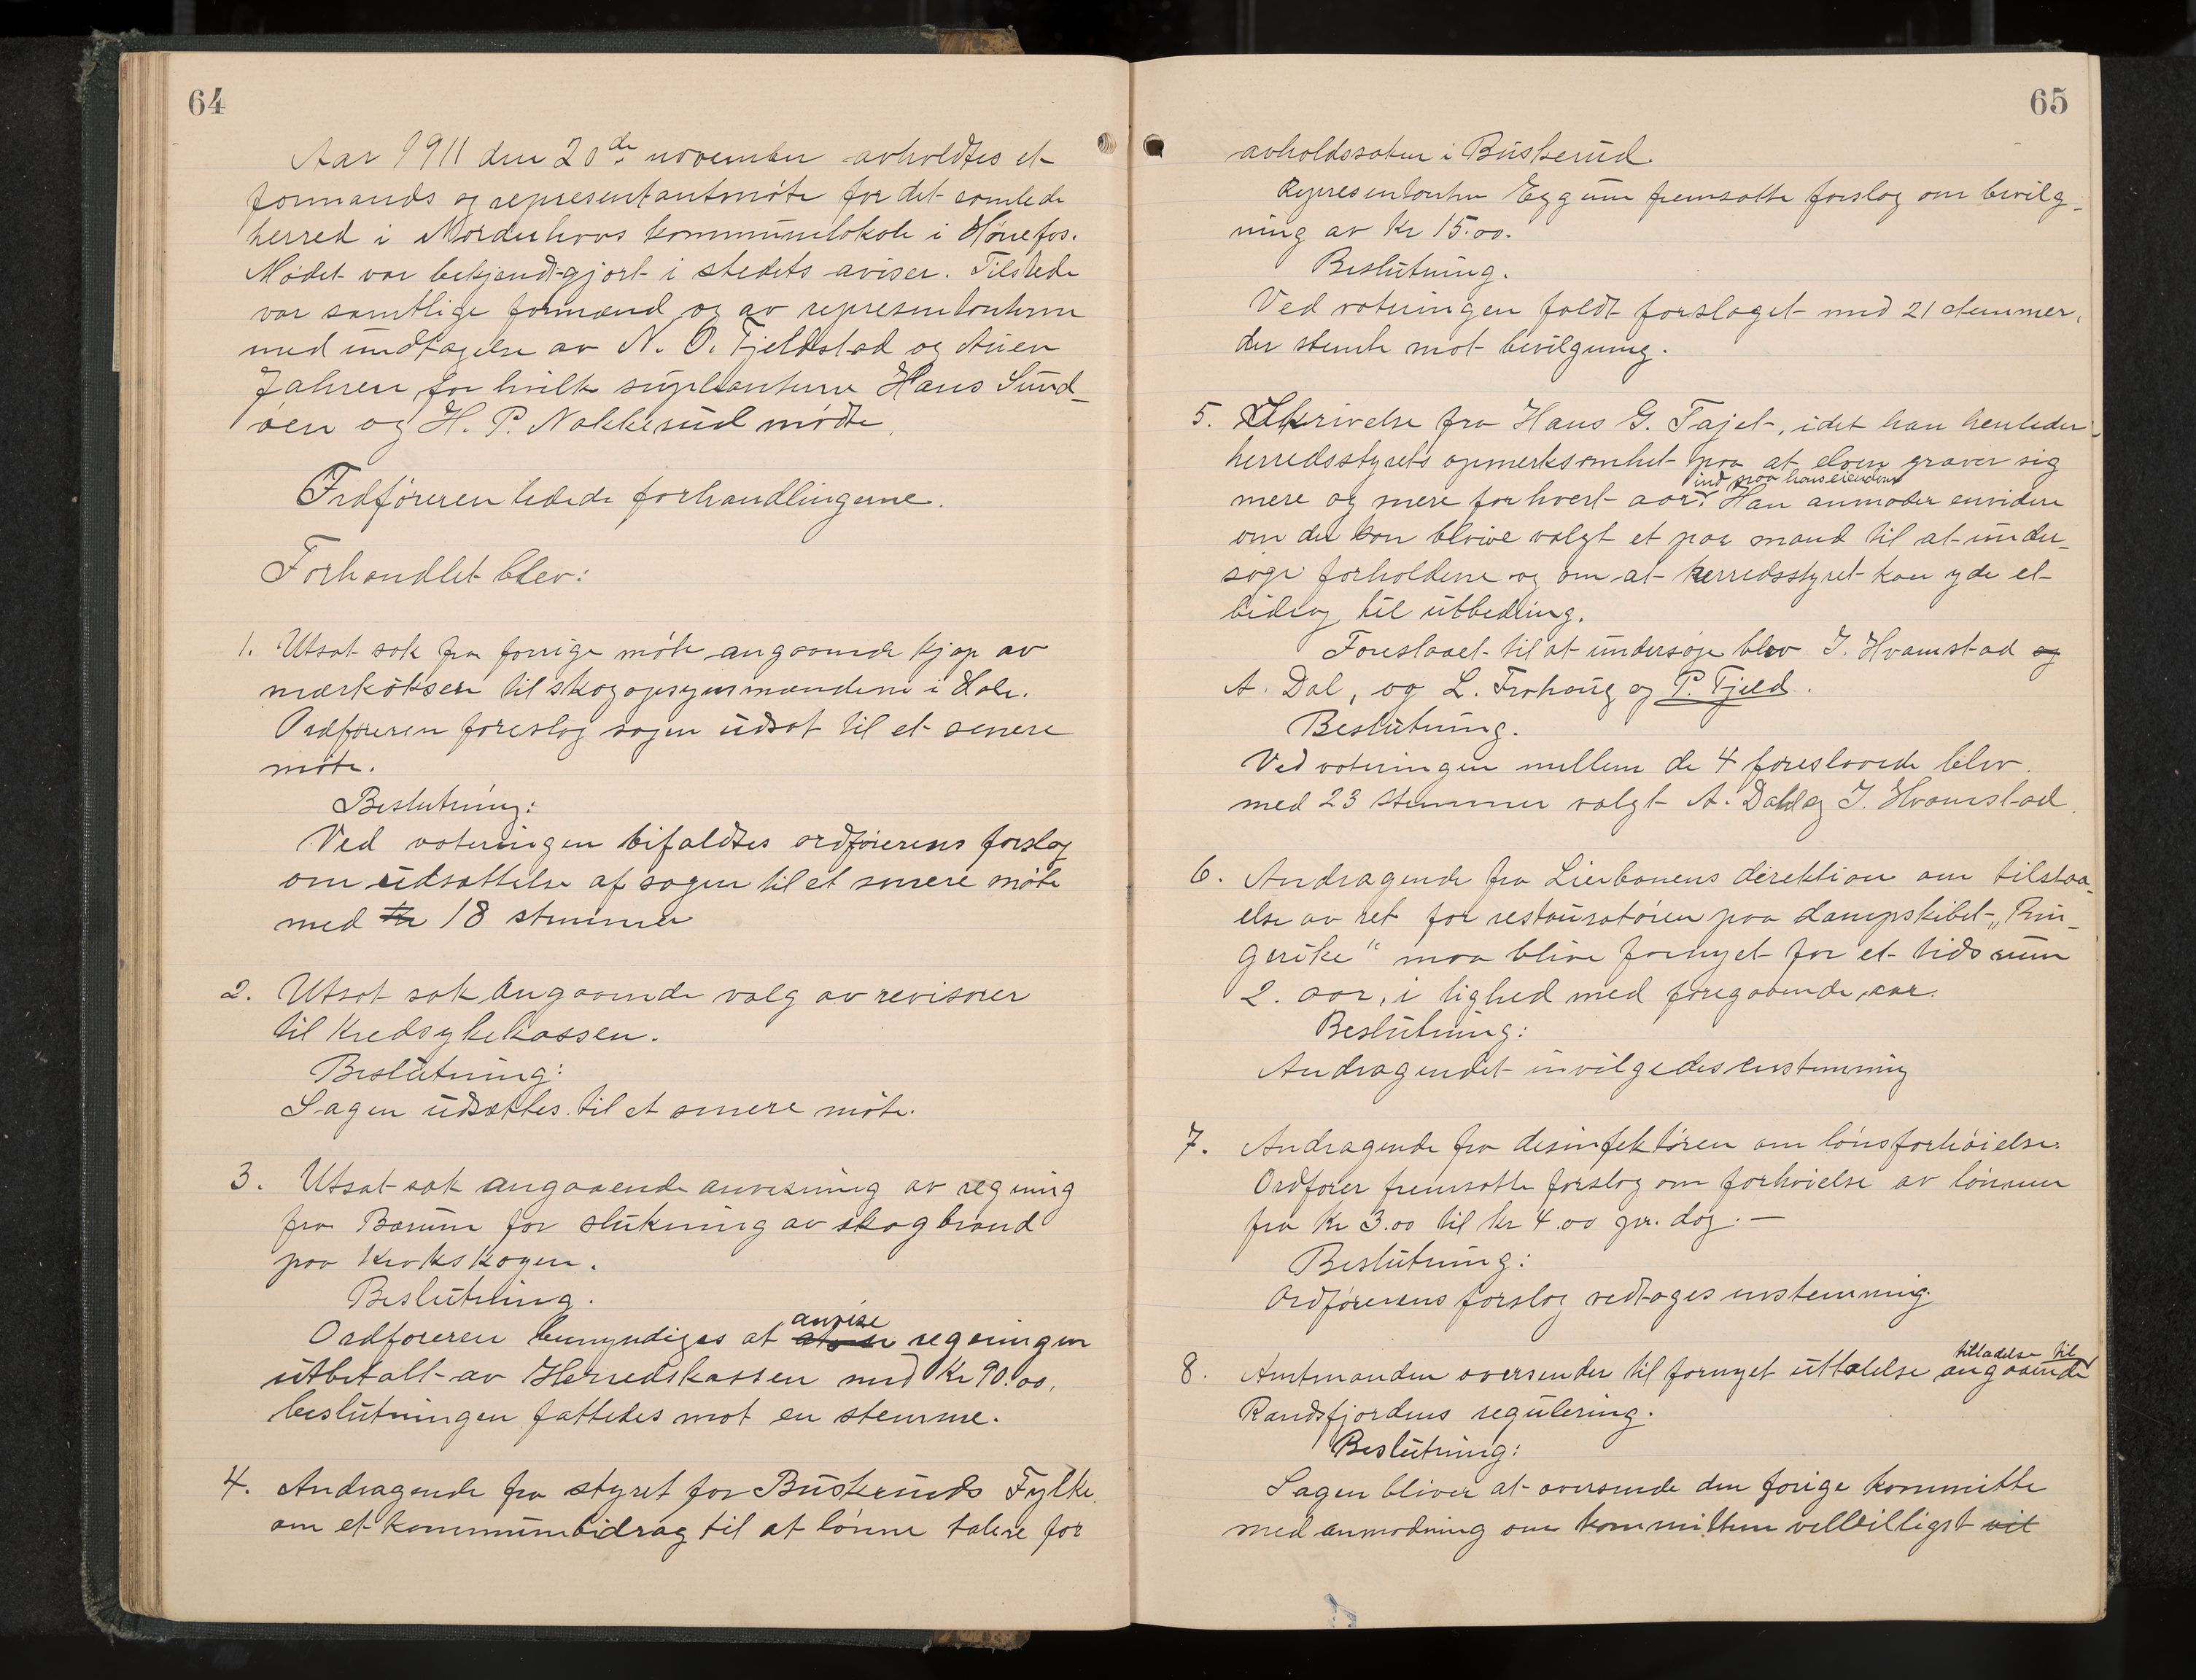 64
Aar 1911 den 20de november avholdtes et
formands og representantmøte for det samlede
herred i Norderhovs kommunelokale i Hønefos.
Mødet var bekjendtgjort i stedets aviser. Tilstede
var samtlige formænd og av representanterne
med undtagelse av N. O. Fjeldstad og
for hvilke suplanterne Hans Sund-
øen og H. P. Nakkerud mødte.
Ordføreren ledede forhandlingerne.
Forhandlet blev:
1. Utsat sak fra forrige møte angaaende kjøp av
merkøkser til skogopsynsmændene i Hole.
Ordføreren foreslog sagen udsat til et senere
møte.
Beslutning:
Ved voteringen bifaldtes ordførerens forslag
om udsættelse af sagen til et senere møte
med Kr 18 stemmer
2. Utsat sak angaaende valg av revisorer
til Kredsykekassen.
Beslutning:
Sagen udsættes til et senere møte.
3. Utsat sak angaaende anvisning av regning
fra Bærum for slukning av skogbrand
paa Krokskogen.
Beslutning.
Ordføreren bemyndiges at anvise regningen
utbetalt av Herredskassen med Kr 90.00,
beslutningen fattedes mot en stemme.
4. Andragende fra styret for Buskeruds Fylke
om et kommunebidrag til at lønne talere for
65
avholdssaken i Buskerud.
Representanten Eggum fremsatte forslag om bevilg-
ning av Kr 15.00.
Beslutning.
Ved voteringen faldt forslaget med 21 stemmer,
der stemte mot bevilgning.
5. Skrivelse fra Hans G. Tajet, idet han henleder
herredsstyrets opmerksomhet paa at elven graver sig
ind paa hans eiendom
mere og mere for hvert aar. Han anmoder envidere
om der kan blive valgt et par mand til at under-
søge forholdene og om at herredsstyret kan yde et
bidrag til utbedring.
Foreslaaet til at undersøge blev I. Hvamstad og
A. Dal, og L. Frohaug og P. Fjeld.
Beslutning.
Ved voteringen mellem de 4 foreslaaede blev
med 23 stemmer valgt A. Dahl og I. Hvamstad.
6. Andragende fra Lierbanens direktion om tilstaa-
else av ret for restauratøren paa dampskibet „Rin-
gerike“ maa blive fornyet for et tidsrum
2. aar, i lighed med foregaaende aar.
Beslutning:
Andragendet invilgedes enstemmig
7. Andragende fra desinfektøren om lønsforhøielse.
Ordfører fremsatte forslag om forhøielse av lønnen
fra Kr 3.00 til kr 4.00 pr. dag. —
Beslutning:
Ordførerens forslag vedtages enstemmig.
tilladelse til
8. Amtmanden oversender til fornyet uttalelse angaaende
Randsfjordens regulering.
Beslutning:
Sagen bliver at oversende den forige kommitte
med anmodning om kommitteen velvilligst vil